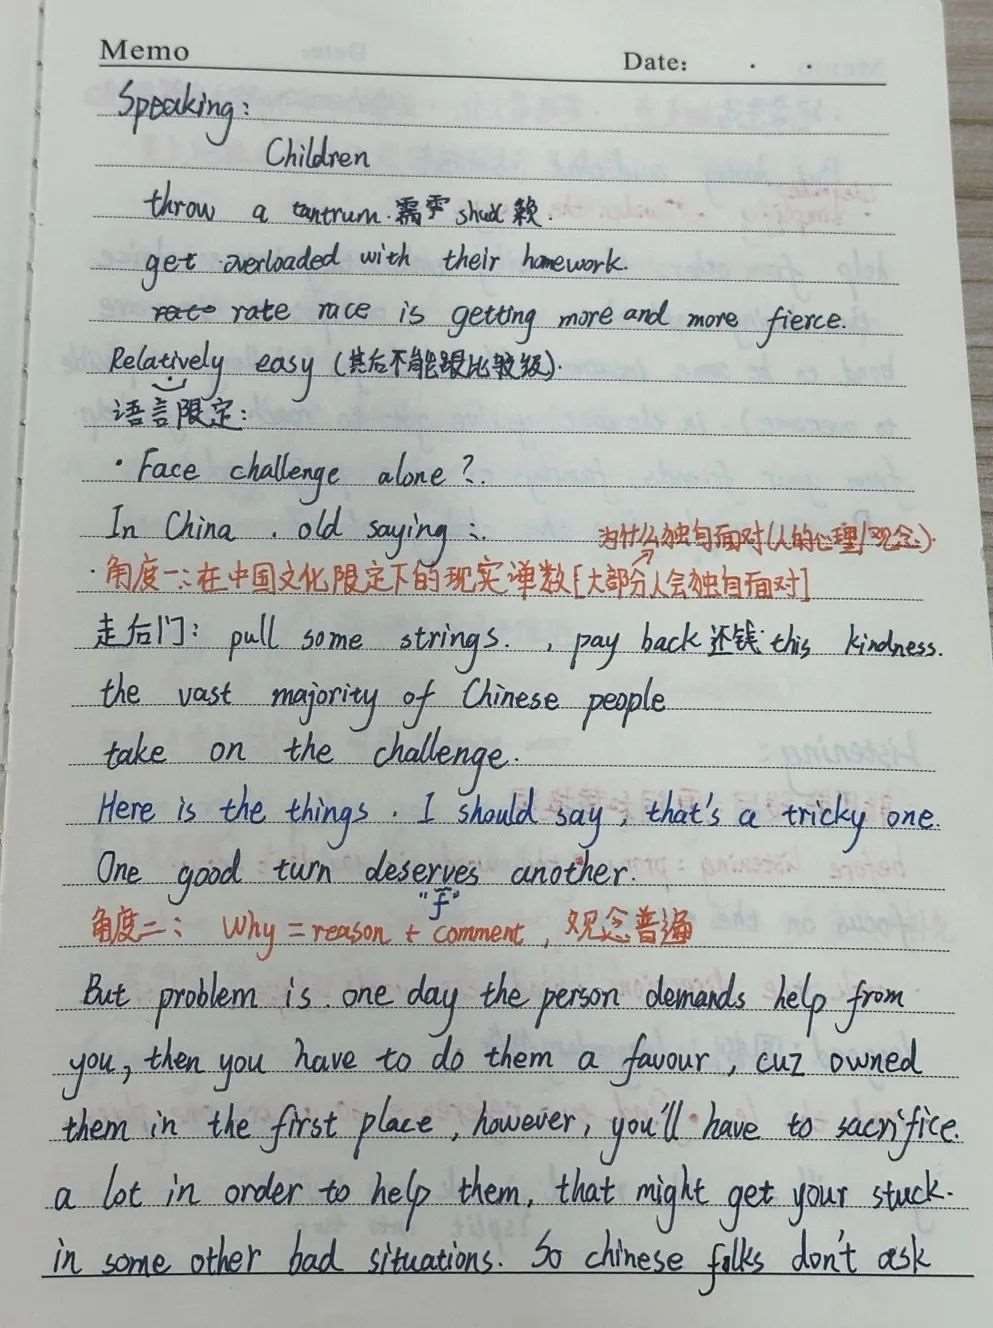 Memo Date:
Speaking:
Children
throw a tantrum. 需 shua 赖.
get overloaded with their homework.
rate race is getting more and more fierce.
Relatively easy (其后不能跟比较级).
语言限定:
· Face challenge alone?.
In China . old saying :. 为什么独自面对(人的心理/观念).
· 角度一:在中国文化限定下的现实 数[大部分人会独自面对]
走后门: pull some strings. , pay back 还钱 this kindness.
the vast majority of Chinese people
take on the challenge.
Here is the things . I should say, that's a tricky one.
One good turn deserves another.
"f"
角度二: Why = reason + comment, 观念普遍
But problem is. one day the person demands help from
you, then you have to do them a favour, cuz owned
them in the first place, however, you'll have to sacrifice.
a lot in order to help them, that might get your stuck.
in some other bad situations. So chinese folks don't ask